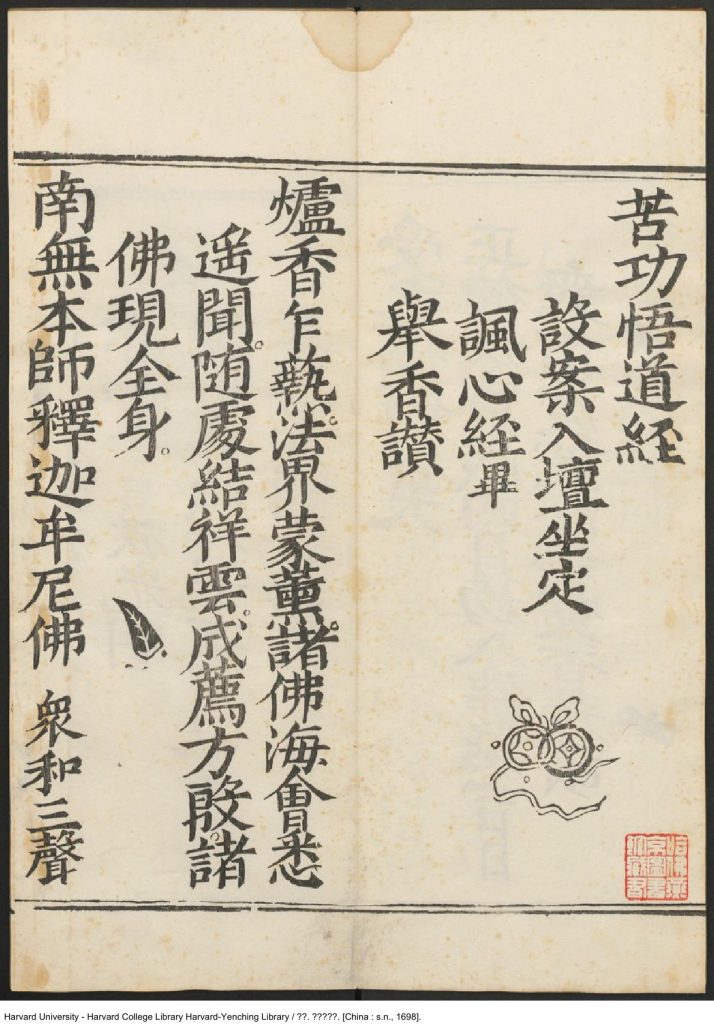 苦功悟道經
設案入壇坐定
諷心經畢
舉香讃
爐香乍爇。法界蒙薰。諸佛海會悉
遥聞。随處結祥雲。成薦方殷。諸
佛現全身。
南無本師釋迦牟尼佛 衆和三聲
哈佛燕京圖書館珍藏
Harvard University - Harvard College Library Harvard-Yenching Library / ??. ?????. [China : s.n., 1698].